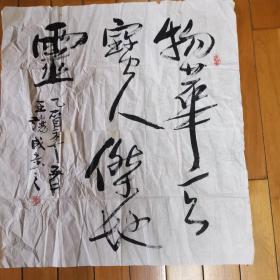 物華天
寶人傑地
靈
乙酉年